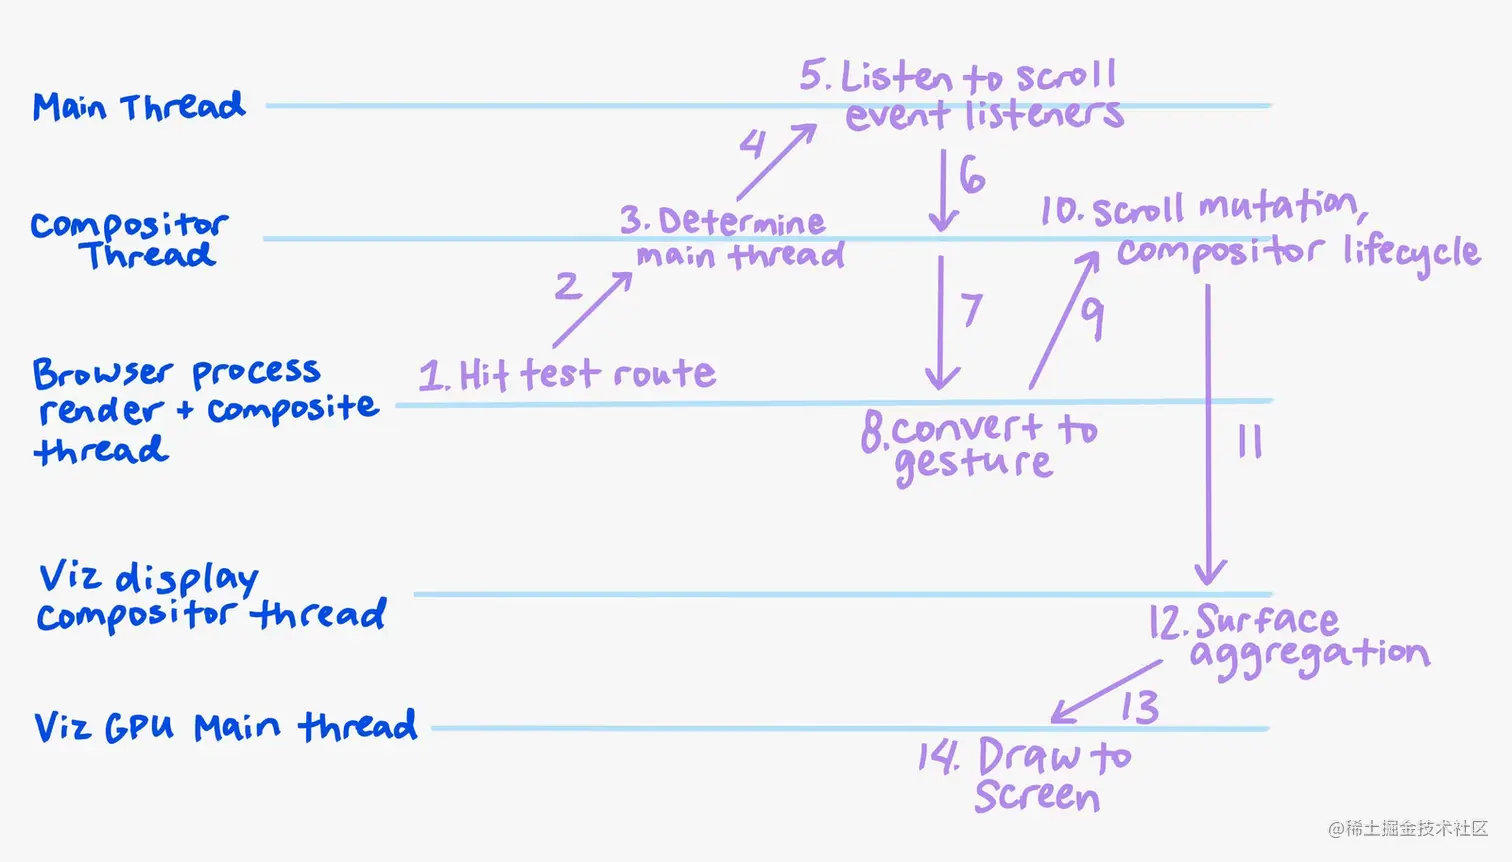 5. Listen to scroll
event listeners
Main Thread
4
6
10. scroll mutation,
compositor lifecycle
3. Determine
main thread
Compositor
Thread
2
7
9
Browser process
render + composite
thread
1. Hit test route
8. convert to
gesture
11
Viz display
compositor thread
12. Surface
aggregation
13
Viz GPU Main thread
14. Draw to
screen
@稀土掘金技术社区